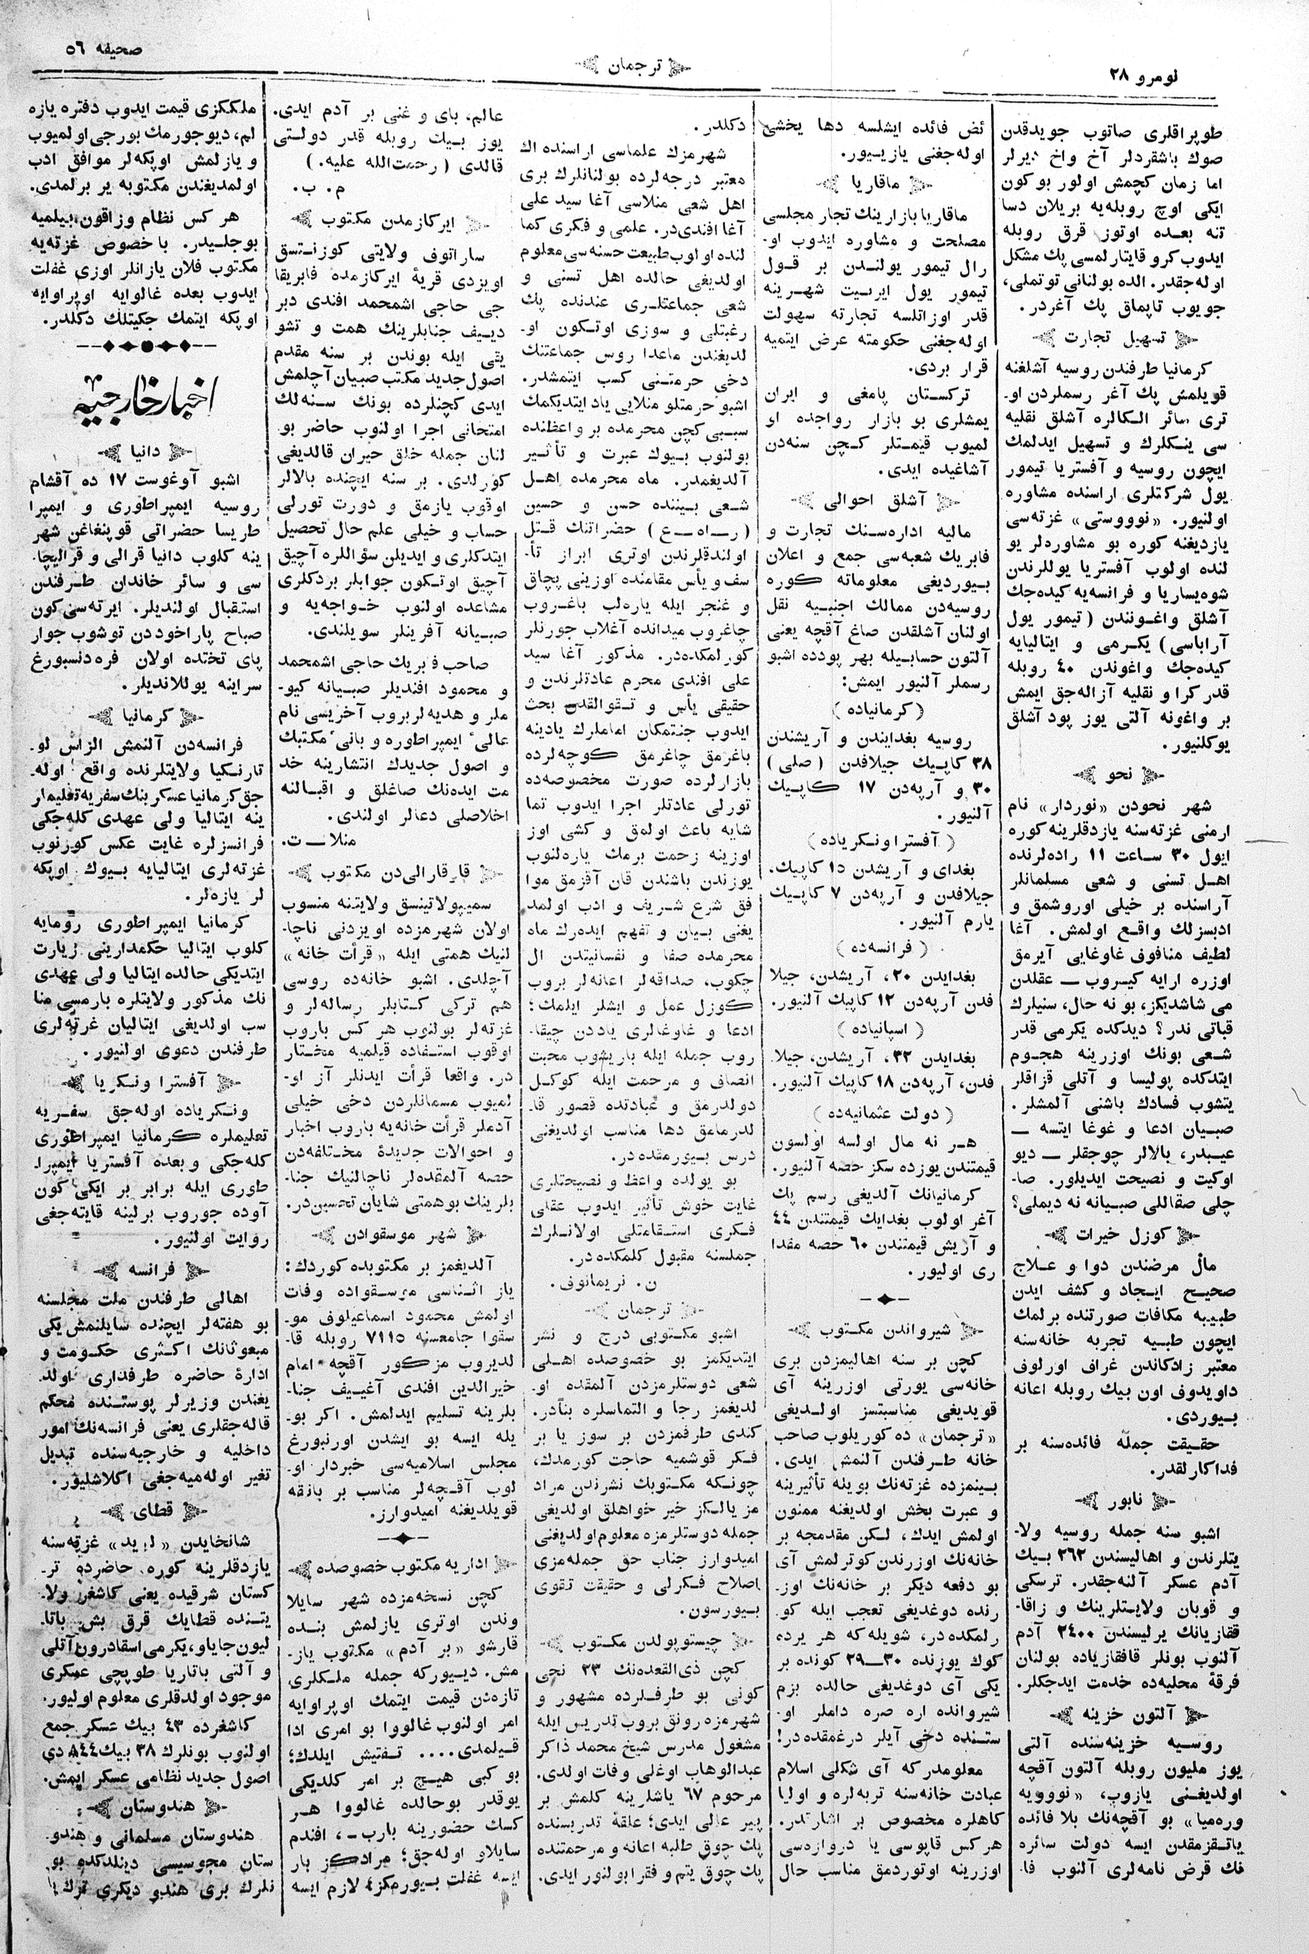 نومرو ٢٨
ترجمان
صحيفه ٥٦
طوپراقلری صاتوب جويدقدن
صوك باشقردلر آخ واخ ديرلر
اما زمان كچمش اولور بوكون
ايكی اوچ روبله‌يه بريلان دسا
تنه بعده اوتوز قرق روبله
ايدوب كرو قايتارلمسی پك مشكل
اوله‌جقدر. الده بولنانی توتملی،
جويوب تاپماق پك آغردر.
تسهيل تجارت
كرمانيا طرفندن روسيه آشلغنه
قويلمش پك آغر رسملردن او-
تری سائر الكالره آشلق نقليه
سی ينكلرك و تسهيل ايدلمك
ايچون روسيه و آفستريا تيمور
يول شركتلری اراسنده مشاوره
اولنيور. «نوووستی» غزته‌سی
يازديغنه كوره بو مشاوره‌لر يو
لنده اولوب آفستريا يوللرندن
شوه‌يساريا و فرانسه‌يه كيده‌جك
آشلق واغونندن (تيمور يول
آراباسی) يكرمی و ايتاليايه
كيده‌جك واغوندن ٤٠ روبله
قدر كرا و نقليه آزاله‌جق ايمش
بر واغونه آلتی يوز پود آشلق
يوكلنيور.
نخو
شهر نخودن «نوردار» نام
ارمنی غزته‌سنه يازدقلرينه كوره
ايول ٣٠ ساعت ١١ راده‌لرنده
اهل تسنی و شعی مسلمانلر
آراسنده بر خيلی اوروشمق و
ادبسزلك واقع اولمش. آغا
لطيف منافوف غاوغايی آيرمق
اوزره ارايه كيروب — عقلدن
می شاشديكز، بو نه حال، سنيلرك
قباتی ندر؟ ديدكده يكرمی قدر
شعی بونك اوزرينه هجوم
ايتدكده پوليسا و آتلی قزاقلر
يتشوب فسادك باشنی آلمشلر.
صبيان ادعا و غوغا ايتسه —
عيبدر، بالالر چوجقلر — ديو
اوكيت و نصيحت ايديلور. صا-
چلی صقاللی صبيانه نه ديملی؟
كوزل خيرات
مال مرضندن دوا و علاج
صحيح ايجاد و كشف ايدن
طبيبه مكافات صورتنده برلمك
ايچون طبيه تجربه خانه‌سنه
معتبر زادكاندن غراف اورلوف
داويدوف اون بيك روبله اعانه
بيوردی.
حقيقت جمله فائده‌سنه بر
فداكارلقدر.
نابور
اشبو سنه جمله روسيه ولا-
يتلرندن و اهاليسندن ٢٦٢ بيك
آدم عسكر آلنه‌جقدر. ترسكی
و قوبان ولايتلرينك و زاقا-
قفازيانك يرليسندن ٢٤٠٠ آدم
آلنوب بونلر قافقازياده بولنان
فرقهٔ محليه‌ده خدمت ايدجكلر.
آلتون خزينه
روسيه خزينه‌سنده آلتی
يوز مليون روبله آلتون آقچه
اولديغنی يازوب، «نوويه
وره‌ميا» بو آقچه‌نك بلا فائده
ياتقزمقدن ايسه دولت سائره
نك قرض نامه‌لری آلنوب فا-
ئض فائده ايشلسه دها يخشی
اوله‌جغنی يازييور.
ماقاريا
ماقاريا بازارينك تجار مجلسی
مصلحت و مشاوره ايدوب او-
رال تيمور يولندن بر قول
تيمور يول ايربيت شهرينه
قدر اوزاتلسه تجارته سهولت
اوله‌جغنی حكومته عرض ايتميه
قرار بردی.
تركستان پامغی و ايران
يمشلری بو بازار رواجده او
لميوب قيمتلر كچن سنه‌دن
آشاغيده ايدی.
آشلق احوالی
ماليه اداره‌سنك تجارت و
فابريك شعبه‌سی جمع و اعلان
بيورديغی معلوماته كوره
روسيه‌دن ممالك اجنبيه نقل
اولنان آشلقدن صاغ آقچه يعنی
آلتون حسابيله بهر پودده اشبو
رسملر آلنيور ايمش:
(كرمانياده)
روسيه بغدايندن و آريشندن
٣٨ كاپيك جيلافدن (صلی)
٣٠ و آرپه‌دن ١٧ كاپيك
آلنيور.
(آفسترا ونكرياده)
بغدای و آريشدن ١٥ كاپيك.
جيلافدن و آرپه‌دن ٧ كاپيك
يارم آلنيور.
(فرانسه‌ده)
بغدايدن ٢٠، آريشدن، جيلا
فدن آرپه‌دن ١٢ كاپيك آلنيور.
(اسپانياده)
بغدايدن ٣٢، آريشدن، جيلا.
فدن، آرپه‌دن ١٨ كاپيك آلنيور.
(دولت عثمانيه‌ده)
هر نه مال اولسه اولسون
قيمتندن يوزده سكز حصه آلنيور.
كرمانيانك آلديغی رسم پك
آغر اولوب بغدايك قيمتندن ٤٤
و آريش قيمتندن ٦٠ حصه مقدا
ری اوليور.
شيرواندن مكتوب
كچن بر سنه اهاليمزدن بری
خانه‌سی يورتی اوزرينه آی
قويديغی مناسبتسز اولديغی
«ترجمان» ده كوريلوب صاحب
خانه طرفندن آلنمش ايدی.
بينمزده غزته‌نك بويله تأثيرينه
و عبرت بخش اولديغنه ممنون
اولمش ايدك، لكن مقدمجه بر
خانه‌نك اوزرندن كوترلمش آی
بو دفعه ديكر بر خانه‌نك اوز-
رنده دوغديغی تعجب ايله كو-
رلمكده‌در، شويله‌كه هر يرده
كوك يوزنده ٣٠—٢٩ كونده بر
يكی آی دوغديغی حالده بزم
شيروانده اره صره داملر او-
ستنده دخی آيلر درغمقده‌در!
معلومدركه آی شكلی اسلام
عبادت خانه‌سنه تربه‌لره و اوليا
كاهلره مخصوص بر اشارتدر.
هركس قاپوسی يا دروازه‌سی
اوزرينه اوتوردمق مناسب حال
دكلدر.
شهرمزك علماسی اراسنده اك
معتبر درجه‌لرده بولنانلرك بری
اهل شعی منلاسی آغا سيد علی
آغا افندی‌در. علمی و فكری كما
لنده اولوب طبيعت حسنه‌سی معلوم
اولديغی حالده اهل تسنی و
شعی جماعتلری عندنده پك
رغبتلی و سوزی اوتكون او-
لديغندن ماعدا روس جماعتنك
دخی حرمتنی كسب ايتمشدر.
اشبو حرمتلو منلايی ياد ايتديكمك
سببی كچن محرمده بر واعظنده
بولنوب بيوك عبرت و تأثير
آلديغمدر. ماه محرمده اهل
شعی بيننده حسن و حسين
(ر—اه—ع) حضراتنك قتل
اولندقلرندن اوتری ابراز تأ-
سف و يأس مقامنده اوزينی پچاق
و غنجر ايله ياره‌لب باغروب
چاغروب ميدانده آغلاب جورنلر
كورلمكده‌در. مذكور آغا سيد
علی افندی محرم عادتلرندن و
حقيقی يأس و تقوالقدن بحث
ايدوب جنتمكان اماملرك يادينه
باغرمق چاغرمق كوچه‌لرده
بازارلرده صورت مخصوصه‌ده
تورلی عادتلر اجرا ايدوب تما
شايه باعث اولمق و كشی اوز
اوزينه زحمت برمك ياره‌لنوب
يوزندن باشندن قان آقزمق موا
فق شرع شريف و ادب اولمد
يغنی بيان و تفهم ايده‌رك ماه
محرمده صفا و نفسانيتدن ال
چكوب، صداقه‌لر اعانه‌لر بروب
كوزل عمل و ايشلر ايلمك:
ادعا و غاوغالری ياددن چيقا-
روب جمله ايله باريشوب محبت
انصاف و مرحمت ايله كوكل
دولدرمق و عبادتده قصور قا-
لدرمامق دها مناسب اولديغنی
درس بيورمقده‌در.
بو يولده واعظ و نصيحتلری
غايت خوش تأثير ايدوب عقلی
فكری استقامتلی اولانلرك
جملسنه مقبول كلمكده‌در.
ن. نريمانوف.
ترجمان
اشبو مكتوبی درج و نشر
ايتديكمز بو خصوصده اهلی
شعی دوستلرمزدن آلمقده او-
لديغمز رجا و التماسلره بنأدر.
كندی طرفمزدن بر سوز يا بر
فكر قوشميه حاجت كورمدك،
چونكه مكتوبك نشرندن مراد
مز يالكز خير خواهلق اولديغی
جمله دوستلرمزه معلوم اولديغنی
اميدوارز جناب حق جمله‌مزی
اصلاح فكرلی و حقيقت تقوی
بيورسون.
چيستوپولدن مكتوب
كچن ذی‌القعده‌نك ٢٣ نچی
كونی بو طرفلرده مشهور و
شهرمزه رونق بروب تدريس ايله
مشغول مدرس شيخ محمد ذاكر
عبدالوهاب اوغلی وفات اولدی.
مرحوم ٦٧ ياشلرينه كلمش بر
پير عالی ايدی؛ علقهٔ تدريسنده
پك چوق طلبه اعانه و مرحمتنده
پك چوق يتم و فقرا بولنور ايدی.
عالم، بای و غنی بر آدم ايدی.
يوز بيك روبله قدر دولتی
قالدی (رحمت‌الله عليه.)
م. ب.
ايركازمدن مكتوب
ساراتوف ولايتی كوزنتسق
اويزدی قريهٔ ايركازمده فابريقا
جی حاجی اشمحمد افندی دبر
دييف جنابلرينك همت و تشو
يقی ايله بوندن بر سنه مقدم
اصول جديد مكتب صبيان آچلمش
ايدی كچنلرده بونك سنه‌لك
امتحانی اجرا اولنوب حاضر بو
لنان جمله خلق حيران قالديغی
كورلدی. بر سنه ايچنده بالالر
اوقوب يازمق و دورت تورلی
حساب و خيلی علم حال تحصيل
ايتدكلری و ايديلن سؤاللره آچيق
آچيق اوتكون جوابلر بردكلری
مشاهده اولنوب خواجه‌يه و
صبيانه آفرينلر سويلندی.
صاحب فبريك حاجی اشمحمد
و محمود افنديلر صبيانه كيو-
ملر و هديه‌لر بروب آخريسی نام
عالیٔ ايمپراطوره و بانیٔ مكتبك
و اصول جديدك انتشارينه خد
مت ايده‌نك صاغلق و اقبالنه
اخلاصلی دعالر اولندی.
منلا — ت.
قارقارالی‌دن مكتوب
سميپولاتينسق ولايتنه منسوب
اولان شهرمزده اويزدنی ناچا-
لنيك همتی ايله «قرأت خانه»
آچلدی. اشبو خانه‌ده روسی
هم تركی كتابلر رساله‌لر و
غزته‌لر بولنوب هركس باروب
اوقوب استفاده قيلميه مختار
در. واقعا قرأت ايدنلر آز او-
لميوب مسمانلردن دخی خيلی
آدملر قرأت خانه‌يه باروب اخبار
و احوالات جديدهٔ مختلفه‌دن
حصه آلمقده‌لر ناچالنيك جنا-
بلرينك بوهمتی شايان تحسين‌در.
شهر موسقوادن
آلديغمز بر مكتوبده كوردك:
ياز اثناسی موسقواده وفات
اولمش محمود اسماعيلوف مو-
سقوا جامعسنه ٧١١٥ روبله قا-
لديروب مزكور آقچه امام
خيرالدين افندی آغييف جنا-
بلرينه تسليم ايدلمش. اكر بو-
يله ايسه بو ايشدن اورنبورغ
مجلس اسلاميه‌سی خبردار او-
لوب آقچه‌لر مناسب بر بانقه
قويلديغنه اميدوارز.
اداريه مكتوب خصوصده
كچن نسخه‌مزده شهر سايلا
وندن اوتری يازلمش بنده
قارشو «بر آدم» مكتوب ياز-
مش. ديوركه جمله ملكلری
تازه‌دن قيمت ايتمك اوپراوايه
امر اولنوب غالووا بو امری ادا
قيلمدی.... تفتيش ايلدك؛
بو كبی هيچ بر امر كلديكی
يوقدير بوحالده غالووا هر
كسك حضورينه بارب-، افندم
سايلاو اوله‌جق؛ مرادكز بار
ايسه غفلت بيورمكز؛ لازم ايسه
ملككزی قيمت ايدوب دفتره يازه
لم، ديو جورمك بورجی اولميوب
و يازلمش اوپكه‌لر موافق ادب
اولمديغندن مكتوبه ير برلمدی.
هركس نظام و زاقون بيلميه
بوجليدر. باخصوص غزته‌يه
مكتوب فلان يازانلر اوزی غفلت
ايدوب بعده غالوايه اوپراوايه
اوپكه ايتمك جكيتلك دكلدر.
اخبار خارجيه
دانيا
اشبو آوغوست ١٧ ده آقشام
روسيه ايمپراطوری و ايمپرا
طريسا حضراتی قوپنغاغن شهر
ينه كلوب دانيا قرالی و قراليچا-
سی و سائر خاندان طرفندن
استقبال اولنديلر. ايرته‌سی كون
صباح پاراخوددن توشوب جوار
پای تختده اولان فره‌دنسبورغ
سراينه يوللانديلر.
كرمانيا
فرانسه‌دن آلنمش الزاس لو-
تارنكيا ولايتلرنده واقع اوله-
جق كرمانيا عسكرينك سفريه تعليملر
ينه ايتاليا ولی عهدی كله‌جكی
فرانسزلره غايت عكس كورنوب
غزته‌لری ايتاليايه بيوك اوپكه
لر يازه‌لر.
كرمانيا ايمپراطوری رومايه
كلوب ايتاليا حكمدارينی زيارت
ايتديكی حالده ايتاليا ولی عهدی
نك مذكور ولايتلره بارمسی منا
سب اولديغی ايتاليان غزته‌لری
طرفندن دعوی اولنيور.
آفسترا ونكريا
ونكرياده اوله‌جق سفريه
تعليملره كرمانيا ايمپراطوری
كله‌جكی و بعده آفستريا ايمپرا
طوری ايله برابر بر ايكی كون
آوده جوروب برلينه قايته‌جغی
روايت اولنيور.
فرانسه
اهالی طرفندن ملت مجلسنه
بو هفته‌لر ايچنده سايلنمش يكی
مبعوثانك اكثری حكومت و
ادارهٔ حاضره طرفداری اولد
يغندن وزيرلر پوستنده محكم
قاله‌جقلری يعنی فرانسه‌نك امور
داخليه و خارجيه‌سنده تبديل
تغير اوله‌ميه‌جغی اكلاشليور.
قطای
شانخايدن غزته‌سنه
يازدقلرينه كوره حاضرده تر-
كستان شرقيده يعنی كاشغر ولا-
يتنده قطايك قرق بش باتا-
ليون جاياو، يكرمی اسقادرون آتلی
و آلتی باتاريا طوپچی عسكری
موجود اولدقلری معلوم اوليور.
كاشغرده ٤٣ بيك عسكر جمع
اولنوب بونلرك ٣٨ بيك ٨٤٤ دی
اصول جديد نظامی عسكر ايمش.
هندوستان
هندوستان مسلمانی و هندو-
ستان مجوسيسی دينلدكدو بو
نلرك بری هندو ديكری ترك